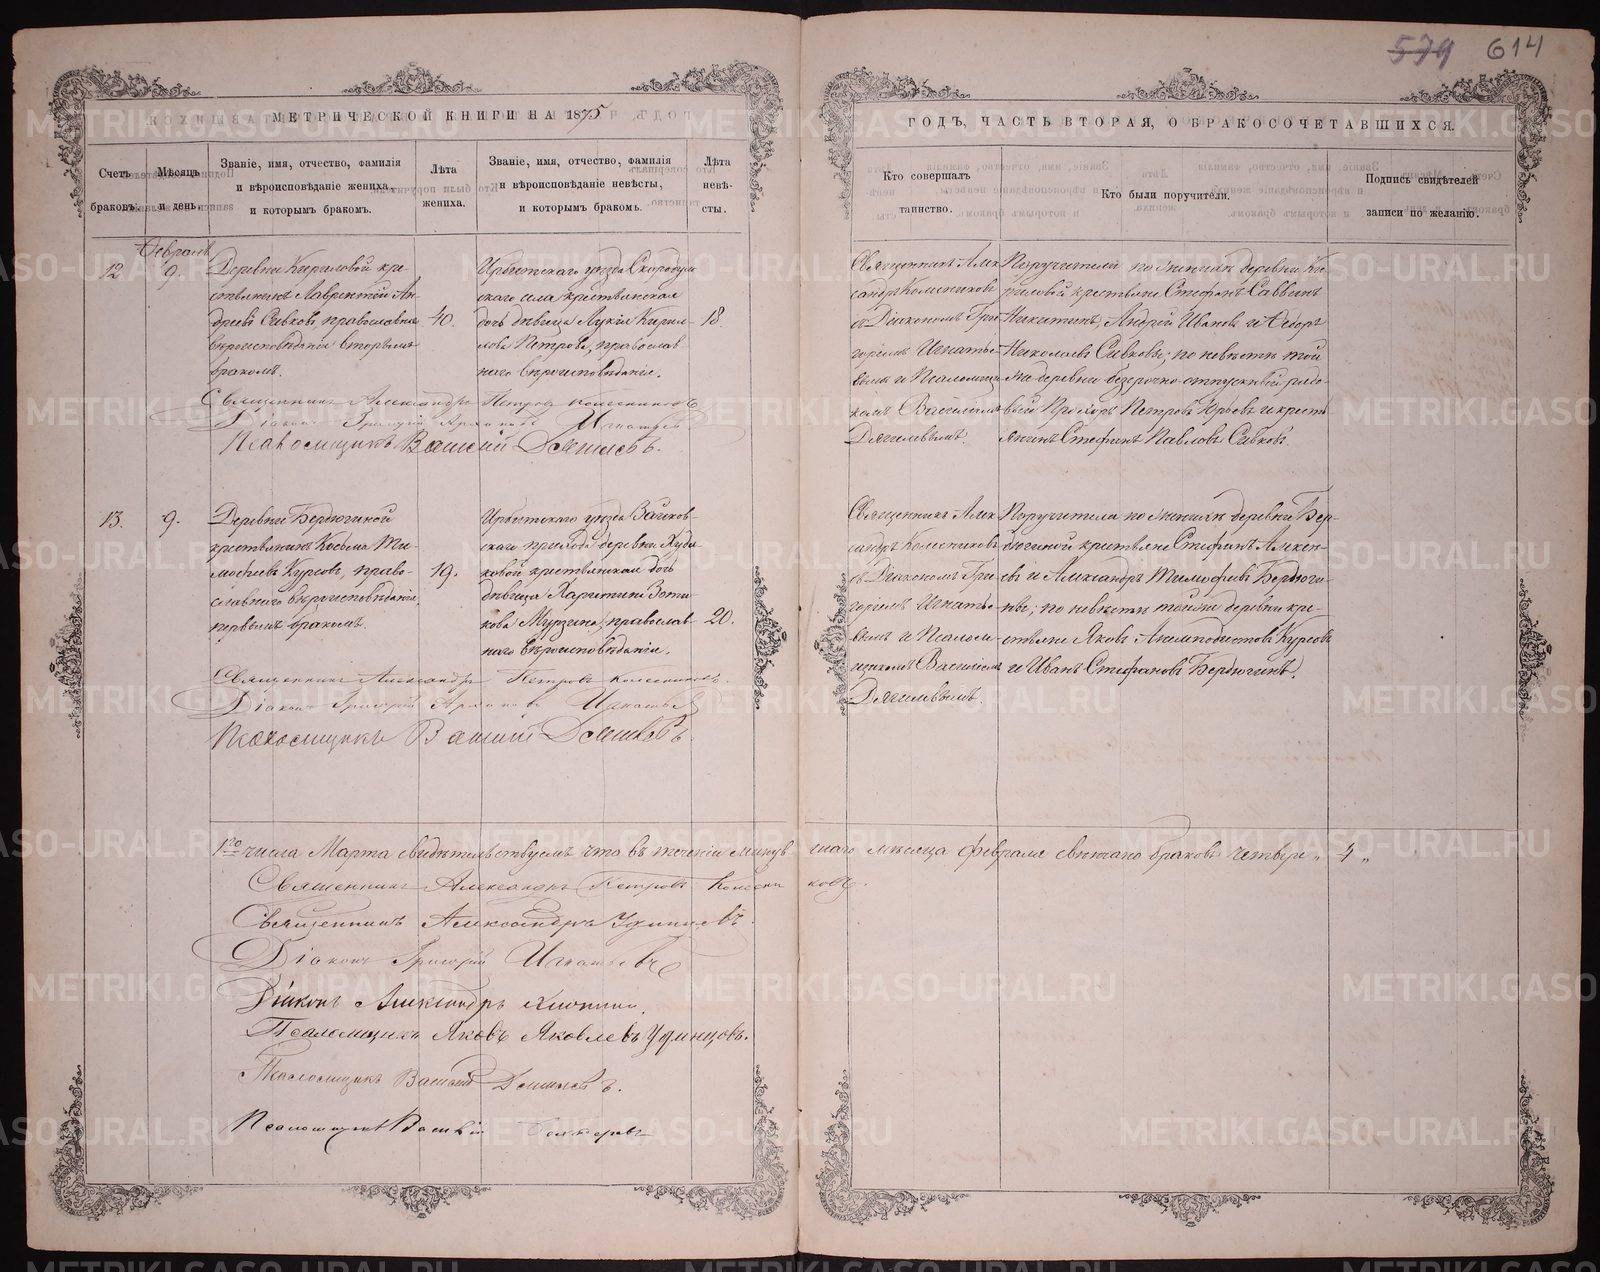 579 614
МЕТРИЧЕСКОЙ КНИГИ НА 1875
ГОДЪ, ЧАСТЬ ВТОРАЯ, О БРАКОСОЧЕТАВШИХСЯ.
Счетъ
браковъ.
Мѣсяцъ
и день.
Званіе, имя, отчество, фамилія
и вѣроисповѣданіе жениха,
и которымъ бракомъ.
Лѣта
жениха.
Званіе, имя, отчество, фамилія
и вѣроисповѣданіе невѣсты,
и которымъ бракомъ.
Лѣта
невѣ-
сты.
Кто совершалъ
таинство.
Кто были поручители.
Подпись свидѣтелей
записи по желанію.
12
Февраль
9.
Деревни Кириловой кре-
стьянинъ Лаврентій Ан-
дреевъ Сивковъ, православнаго
вѣроисповѣданія вторымъ
бракомъ.
40.
Ирбитскаго уѣзда Скородум-
скаго села крестьянская
дочь дѣвица Лукія Кирил-
лова Петрова, православ-
наго вѣроисповѣданія.
18.
Священникъ Алек
сандръ Колесниковъ
съ Діакономъ Гри
горіемъ Игнатье-
вымъ и Псаломщи
комъ Василіемъ
Дягилевымъ.
Поручители по женихѣ деревни Ки
риловой крестьяне Стефанъ Саввинъ
Никитинъ, Андрей Ивановъ и Ѳедоръ
Николаевъ Сивковы; по невѣстѣ той
же деревни безсрочно-отпускной рядо-
вой Прохоръ Петровъ Юрьевъ и кресть
янинъ Стефанъ Павловъ Сивковъ.
Священникъ Александръ Петровъ Колесниковъ
Діаконъ Григорій Игнатьевъ
Псаломщикъ Василій Дягилевъ.
13.
9.
Деревни Бердюгиной
крестьянинъ Косьма Ти-
моѳеевъ Курсовъ, право-
славнаго вѣроисповѣданія,
первымъ бракомъ.
19.
Ирбитскаго уѣзда Зайков-
скаго прихода деревни Худя
ковой крестьянская дочь
дѣвица Харитина Зоти
кова Мурзина, православ-
наго вѣроисповѣданія.
20.
Священникъ Алек
сандръ Колесниковъ
съ Діакономъ Гри-
горіемъ Игнатье-
вымъ и Псалом-
щикомъ Василіемъ
Дягилевымъ.
Поручители по женихѣ деревни Бер-
дюгиной крестьяне Стефанъ Алексе-
евъ и Александръ Тимофеевъ Бердюги-
ны; по невѣстѣ той же деревни кре-
стьяне Яковъ Алимподистовъ Курсовъ
и Иванъ Стефановъ Бердюгинъ.
Священникъ Александръ Петровъ Колесниковъ.
Діаконъ Григорій Игнатьевъ
Псаломщикъ Василій Дягилевъ.
1го числа Марта свидѣтельствуемъ что въ теченіи минув шаго мѣсяца февраля вѣнчано браковъ четыре „ 4 „
Священникъ Александръ Петровъ Колесни ковъ.
Священникъ Александръ Удинцевъ.
Діаконъ Григорій Игнатьевъ
Діаконъ Александръ
Псаломщикъ Яковъ Яковлевъ Удинцовъ.
Псаломщикъ Василій Дягилевъ.
Псаломщикъ Василій
METRIKI.GASO-URAL.RU